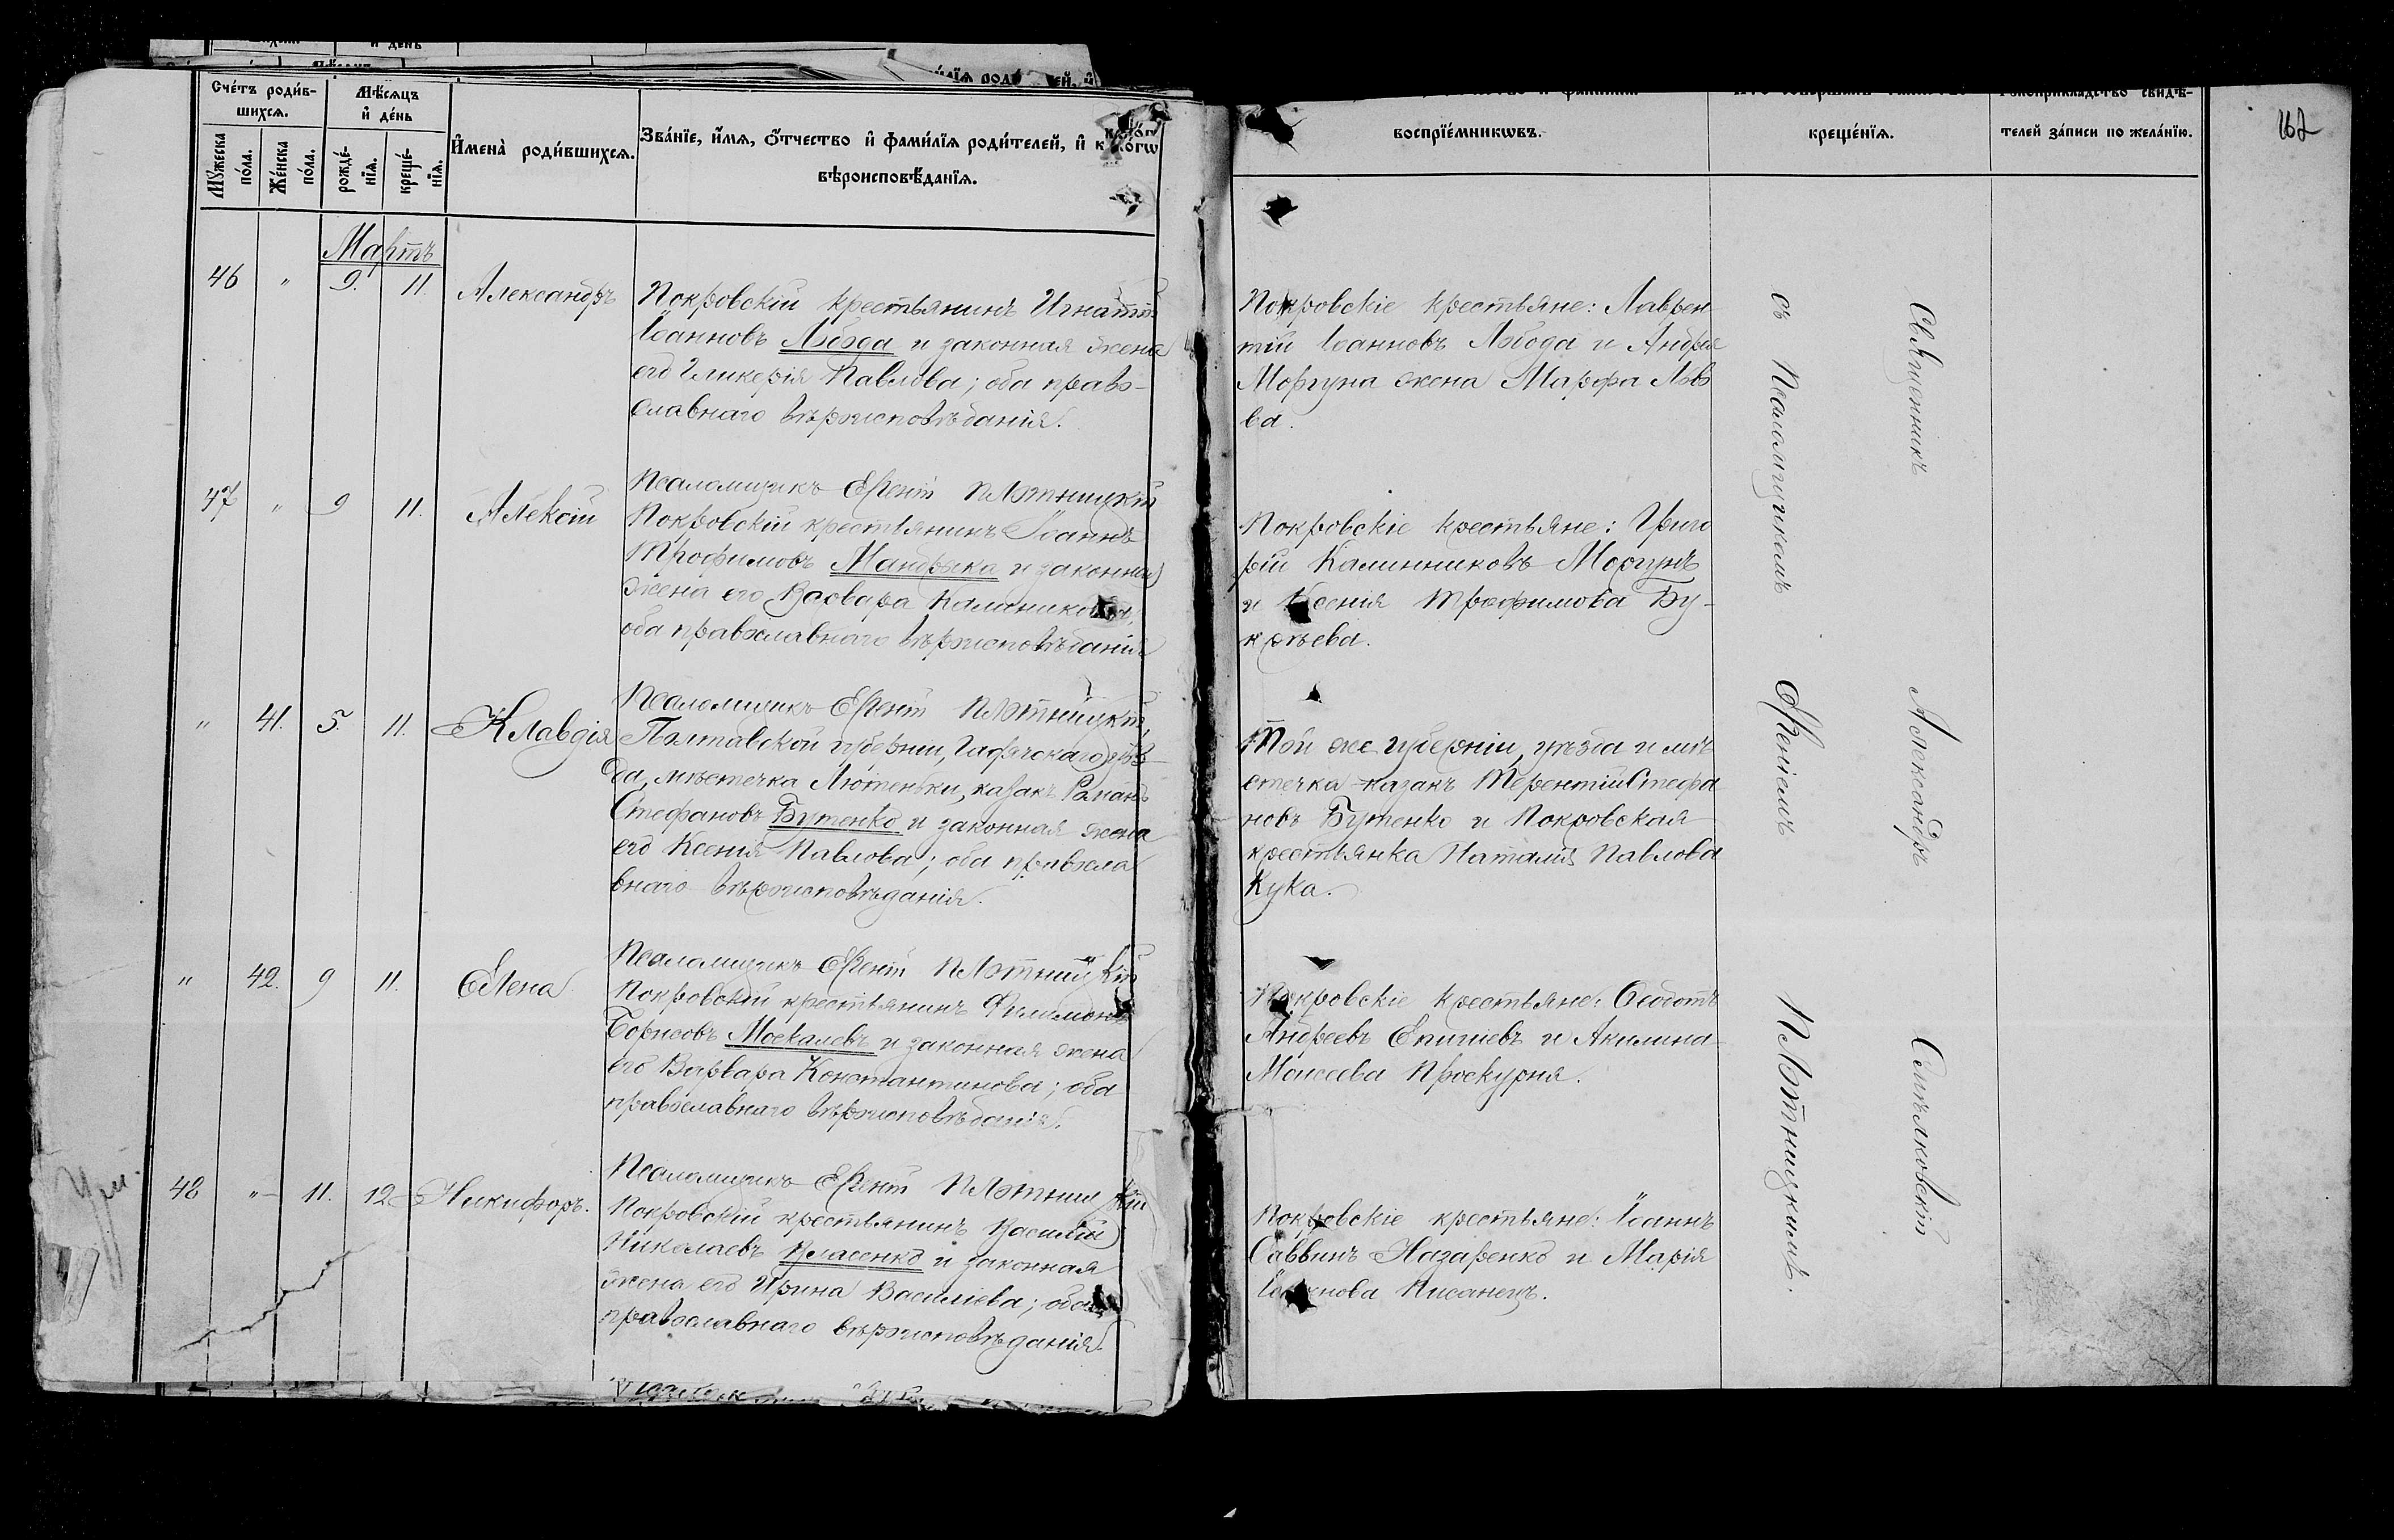 Счетъ родив-
шихся.
Мѣсяцъ
и день
Мужеска пола.
Женска пола.
рожденія.
крещенія.
Имена родившихся.
Званіе, имя, отчество и фамилія родителей, и
вѣроисповѣданія.
воспріемниковъ.
крещенія.
рукоприкладство свидѣ-
телей записи по желанію.
162
Мартъ
46 " 9. 11. Александръ
Покровскій крестьянинъ Игнатій
Іоанновъ Лобода и законная жена
его Гликерія Павлова; оба право-
славнаго вѣроисповѣданія.
Покровскіе крестьяне: Лаврен
тій Іоанновъ Лобода и Андрея
Моргуна жена Марфа Льво
ва.
Псаломщикъ Евгеній Плотницкій
47 " 9 11. Алексій
Покровскій крестьянинъ Іоаннъ
Трофимовъ Мандрыка и законная
жена его Варвара Калиникова,
оба православнаго вѣроисповѣданія
Покровскіе крестьяне: Григо
рій Калинниковъ Моргунъ
и Ксенія Трофимова Бу-
крѣева.
Псаломщикъ Евгеній Плотницкій
" 41. 5. 11. Клавдія
Полтавской губерніи, Гадячскаго уѣз-
да, мѣстечка Лютеньки, казакъ Романъ
Стефановъ Бутенко и законная жена
его Ксенія Павлова; оба правосла
внаго вѣроисповѣданія.
Той же губерніи, уѣзда и мѣ
стечка казакъ Терентій Стефа
новъ Бутенко и Покровская
крестьянка Наталія Павлова
Кука.
Псаломщикъ Евгеній Плотницкій
" 42. 9 11. Елена
Покровскій крестьянинъ Филимонъ
Борисовъ Москалевъ и законная жена
его Варвара Константинова; оба
православнаго вѣроисповѣданія.
Покровскіе крестьяне: Ѳеодотъ
Андреевъ Епишевъ и Акилина
Моисеева Проскурня.
Псаломщикъ Евгеній Плотницкій
48 " 11. 12. Никифоръ.
Покровскій крестьянинъ Василій
Николаевъ Власенко и законная
жена его Ирина Василіева; оба
православнаго вѣроисповѣданія.
Покровскіе крестьяне: Іоаннъ
Саввинъ Назаренко и Марія
Іоаннова Писанецъ.
Священникъ Александръ Смѣлковскій
съ Псаломщикомъ Евгеніемъ Плотницкимъ.